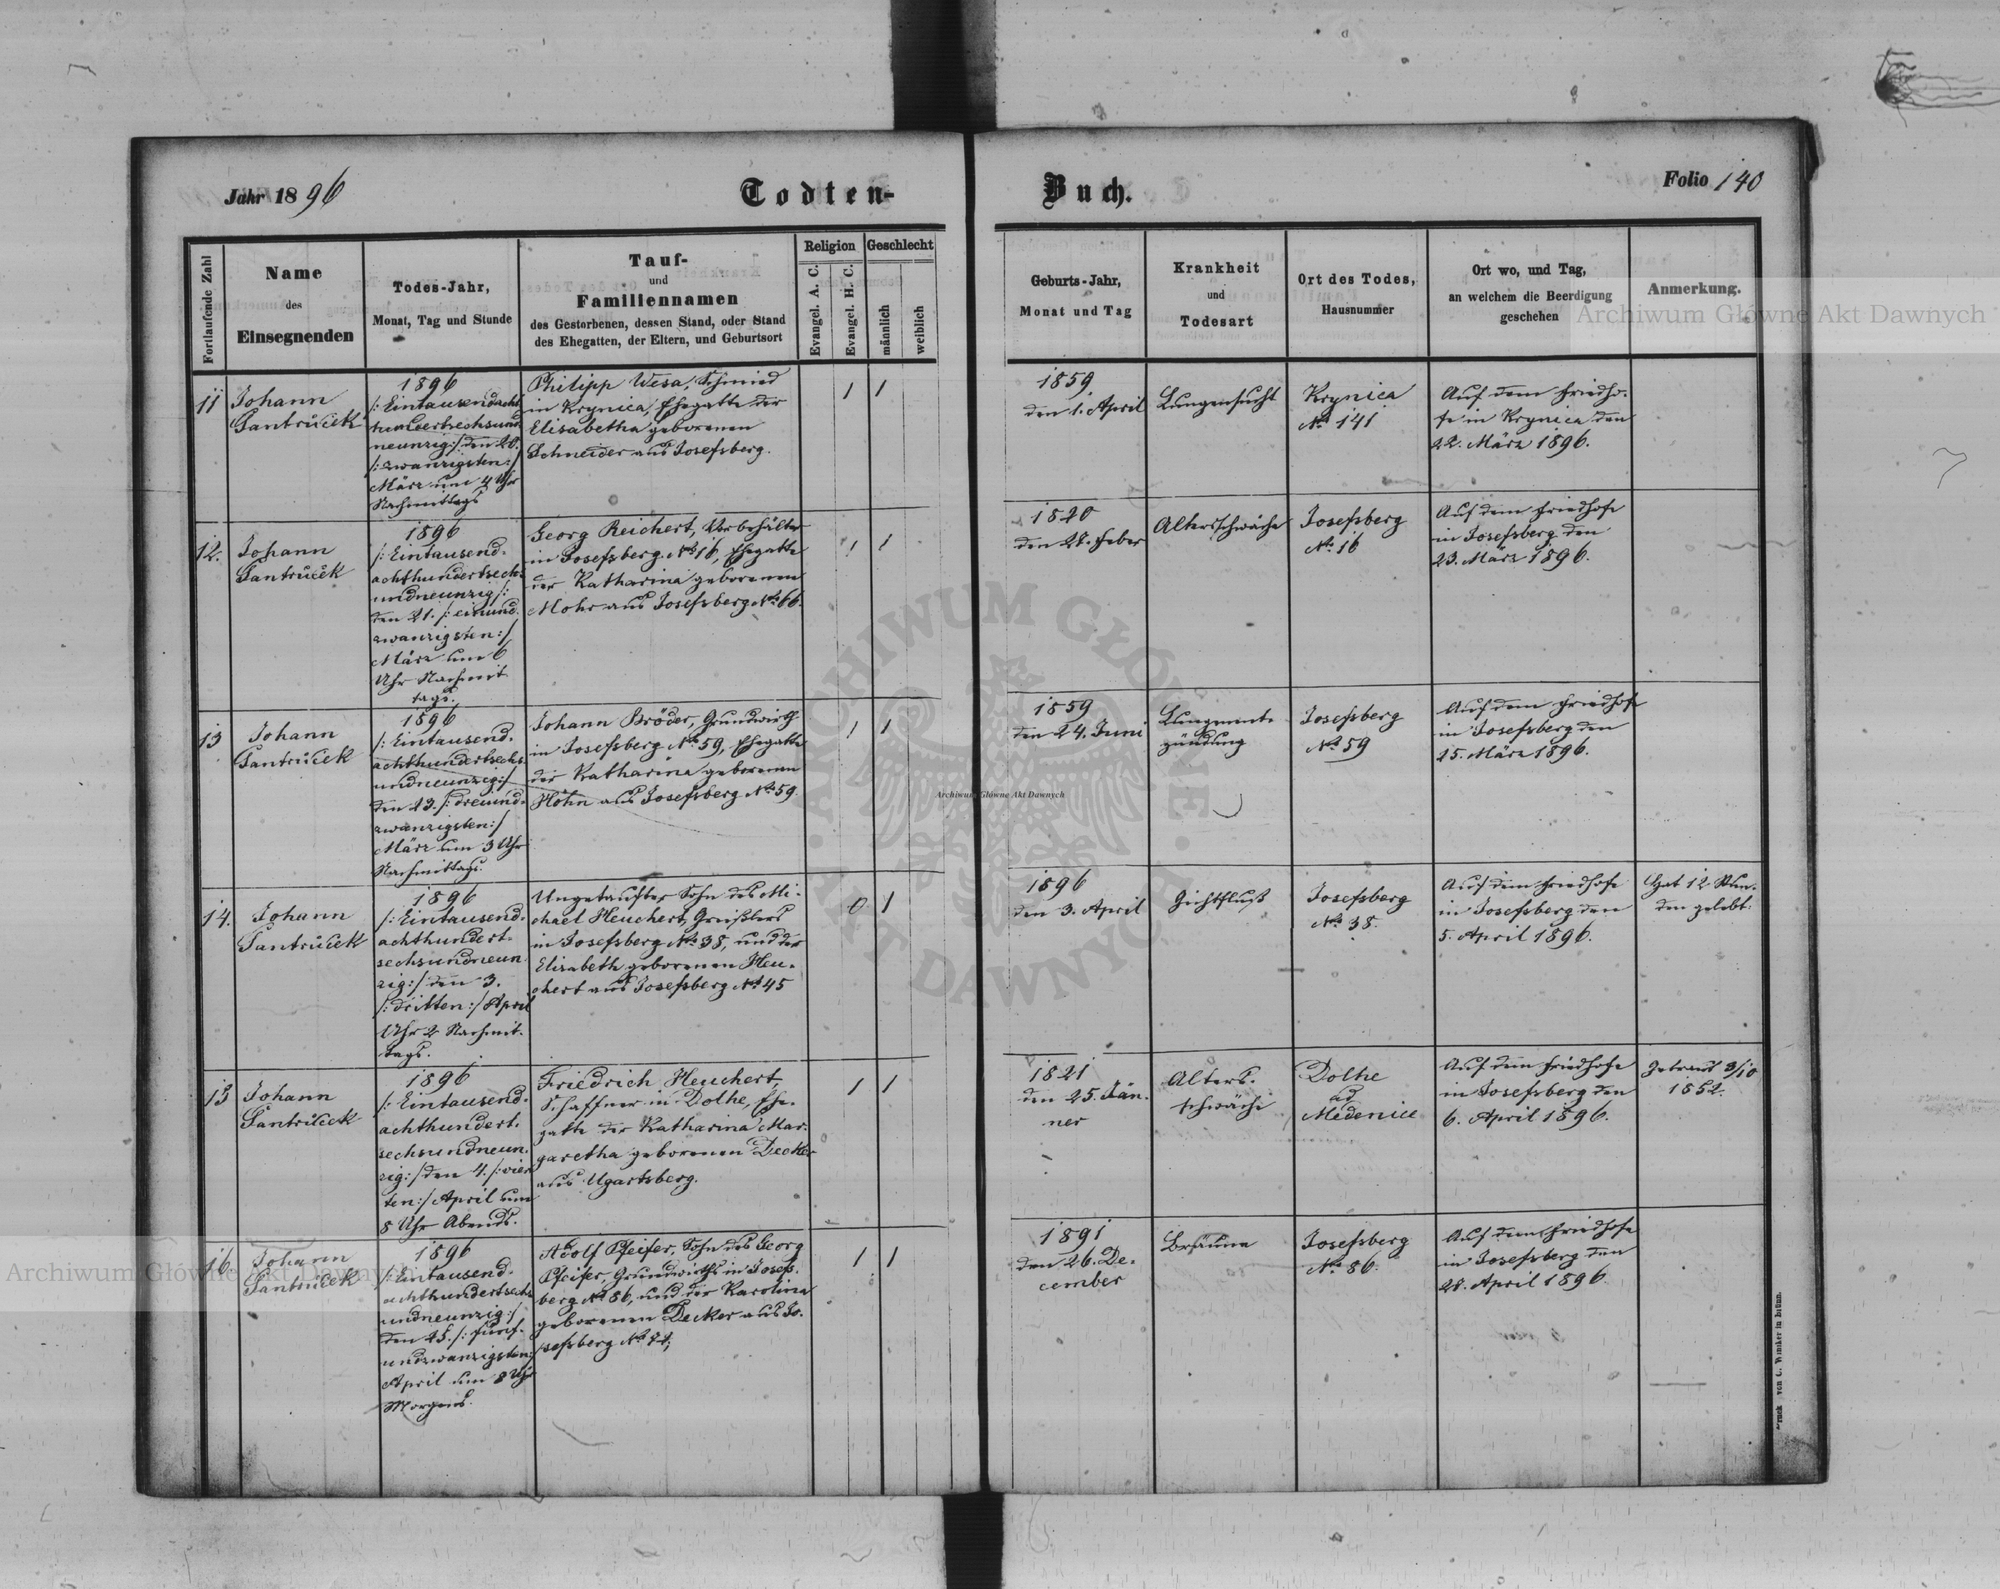 Jahr 1896
Todten-
Buch.
Folio 140
Fortlaufende Zahl
Name
des
Einsegnenden
Todes-Jahr,
Monat, Tag und Stunde
Tauf-
und
Familiennamen
des Gestorbenen, dessen Stand, oder Stand
des Ehegatten, der Eltern, und Geburtsort
Religion
Evangel. A. C.
Evangel. H. C.
Geschlecht
männlich
weiblich
Geburts-Jahr,
Monat und Tag
Krankheit
und
Todesart
Ort des Todes,
Hausnummer
Ort wo, und Tag,
an welchem die Beerdigung
geschehen
Anmerkung.
11
Johann
1896
/: Eintausendacht
hundertsechsund
neunzig :/ den 20.
/: zwanzigsten :/
März um 4 Uhr
Nachmittags
Philipp Wesa, Schmied
in Krynica, Ehegatte der
Elisabetha geborenen
Schneider aus Josefsberg.
1 1
1859
den 1. April
Lungensucht
Krynica
No 141
Auf dem Friedho-
fe in Krynica den
22. März 1896.
12.
Johann
1896
/: Eintausend-
achthundertsechs
undneunzig :/
den 21. /: einund
zwanzigsten :/
März um 6
Uhr Nachmit
tags.
Georg Reichert, Vorbehälter
in Josefsberg No 16, Ehegatte
der Katharina geborenen
Mohr aus Josefsberg No 66.
1 1
1820
den 28. Feber
Altersschwäche
Josefsberg
No 16
Auf dem Friedhofe
in Josefsberg den
23. März 1896.
13
Johann
1896
/: Eintausend-
achthundertsechs
undneunzig :/
den 23. /: dreiund-
zwanzigsten :/
März um 3 Uhr
Nachmittags.
Johann Bröder, Grundwirth
in Josefsberg No 59, Ehegatte
der Katharina geborenen
Höhn aus Josefsberg No 59.
1 1
1859
den 24. Juni
Lungenent-
zündung
Josefsberg
No 59
Auf dem Friedhofe
in Josefsberg den
25. März 1896.
14.
Johann
1896
/: Eintausend-
achthundert-
sechsundneun
zig :/ den 3.
/: dritten :/ April
Uhr 2 Nachmit-
tags.
Ungetaufter Sohn des Mi-
chael Heuchert, Greißlers
in Josefsberg No 38, und der
Elisabeth geborenen Heu-
chert aus Josefsberg No 45
0 1
1896
den 3. April
Gichtfluß
Josefsberg
No 38.
Auf dem Friedhofe
in Josefsberg den
5. April 1896.
Hat 12 Stun-
den gelebt.
15
Johann
1896
/: Eintausend-
achthundert-
sechsundneun-
zig :/ den 4. /: vier
ten :/ April um
8 Uhr Abends.
Friedrich Heuchert,
Schaffner in Dolhe, Ehe-
gatte der Katharina Mar-
garetha geborenen Decker
aus Ugartsberg.
1 1
1821
den 25. Jän-
ner
Alters-
schwäche
Dolhe
ad
Medenice
Auf dem Friedhofe
in Josefsberg den
6. April 1896.
Getraut 3/10
1852.
16.
Johann
1896
/: Eintausend-
achthundertsechs
undneunzig :/
den 25. /: fünf-
undzwanzigsten :/
April um 8 Uhr
Morgens.
Adolf Pfeifer, Sohn des Georg
Pfeifer, Grundwirths in Josefs-
berg No 86, und der Karolina
geborenen Decker aus Jo-
sefsberg No
1 1
1891
den 26. De-
cember
Bräune
Josefsberg
No 86.
Auf dem Friedhofe
in Josefsberg den
28. April 1896.
Archiwum Główne Akt Dawnych
ARCHIWUM GŁÓWNE
AKT DAWNYCH
Archiwum Główne Akt Dawnych
Archiwum Główne Akt Dawnych